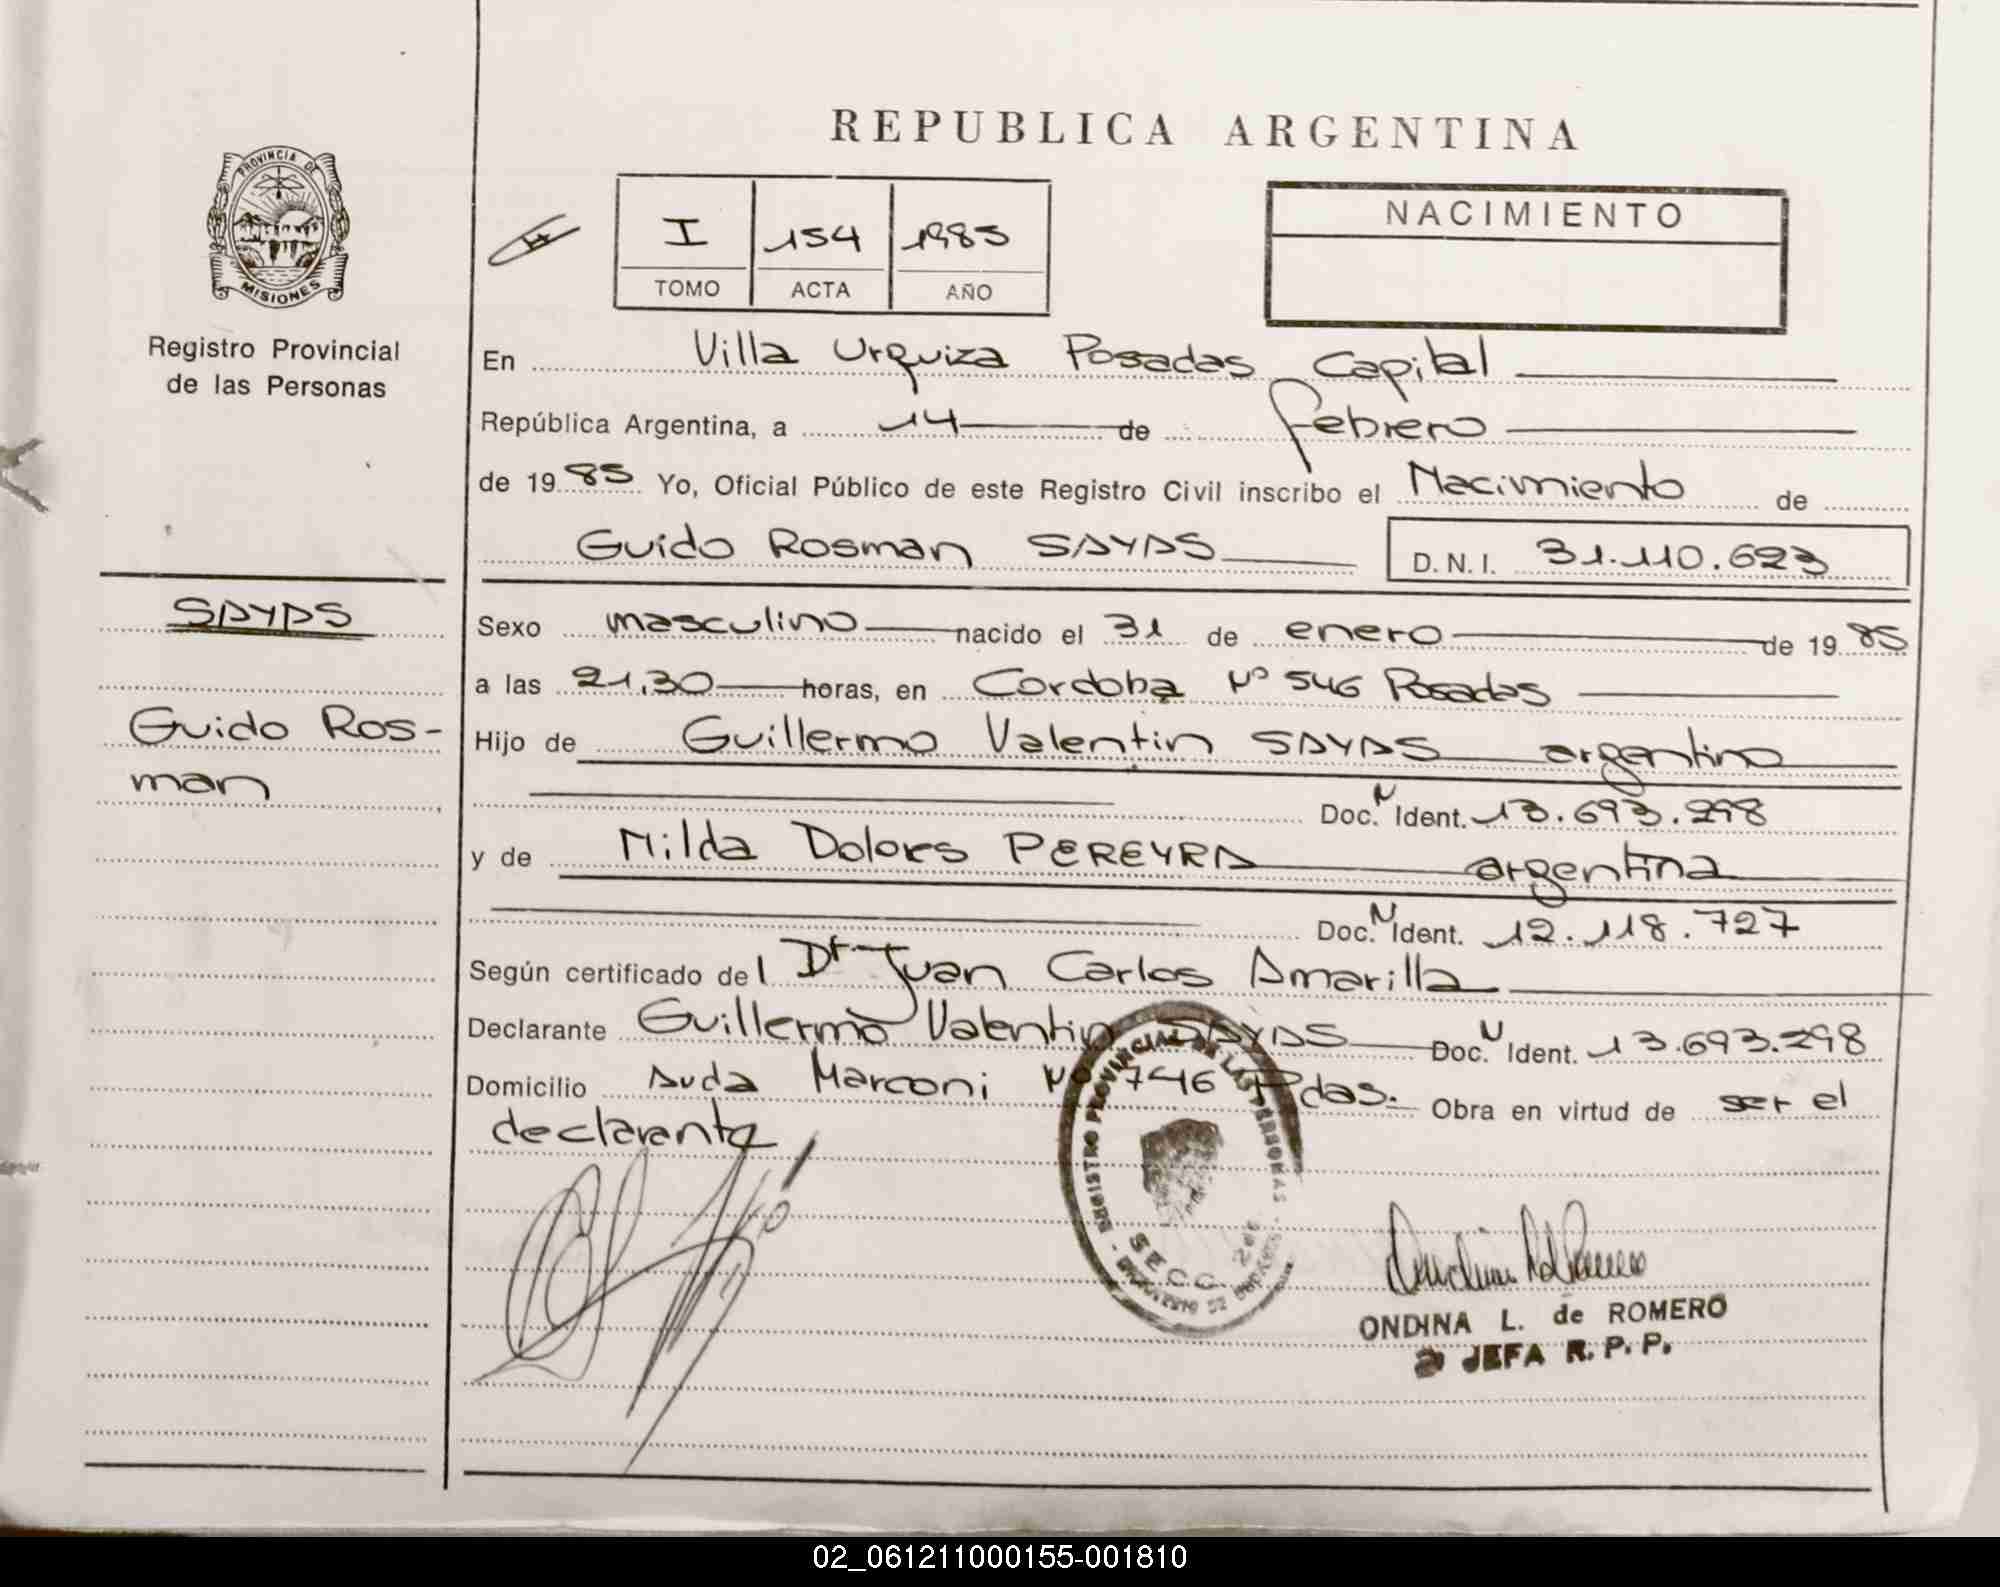 REPUBLICA ARGENTINA
PROVINCIA DE
MISIONES
Registro Provincial
de las Personas
I 154 1985
TOMO ACTA AÑO
NACIMIENTO
En Villa Urquiza Posadas Capital
República Argentina, a 14 de febrero
de 1985 Yo, Oficial Público de este Registro Civil inscribo el Nacimiento de
Guido Rosman SAYAS D.N.I. 31.110.623
SAYAS
Guido Ros-
man
Sexo masculino nacido el 31 de enero de 1985
a las 21,30 horas, en Cordoba Nº 546 Posadas
Hijo de Guillermo Valentin SAYAS argentino
Doc. N Ident. 13.693.298
y de Nilda Dolores PEREYRA argentina
Doc. N Ident. 12.118.727
Según certificado del Dr Juan Carlos Amarilla
Declarante Guillermo Valentin SAYAS Doc. N Ident. 13.693.298
Domicilio Avda Marconi Nº 746 Pdas. Obra en virtud de ser el
declarante
REGISTRO PROVINCIAL DE LAS PERSONAS
SECC. 2da
ONDINA L. de ROMERO
JEFA R.P.P.
02_061211000155-001810